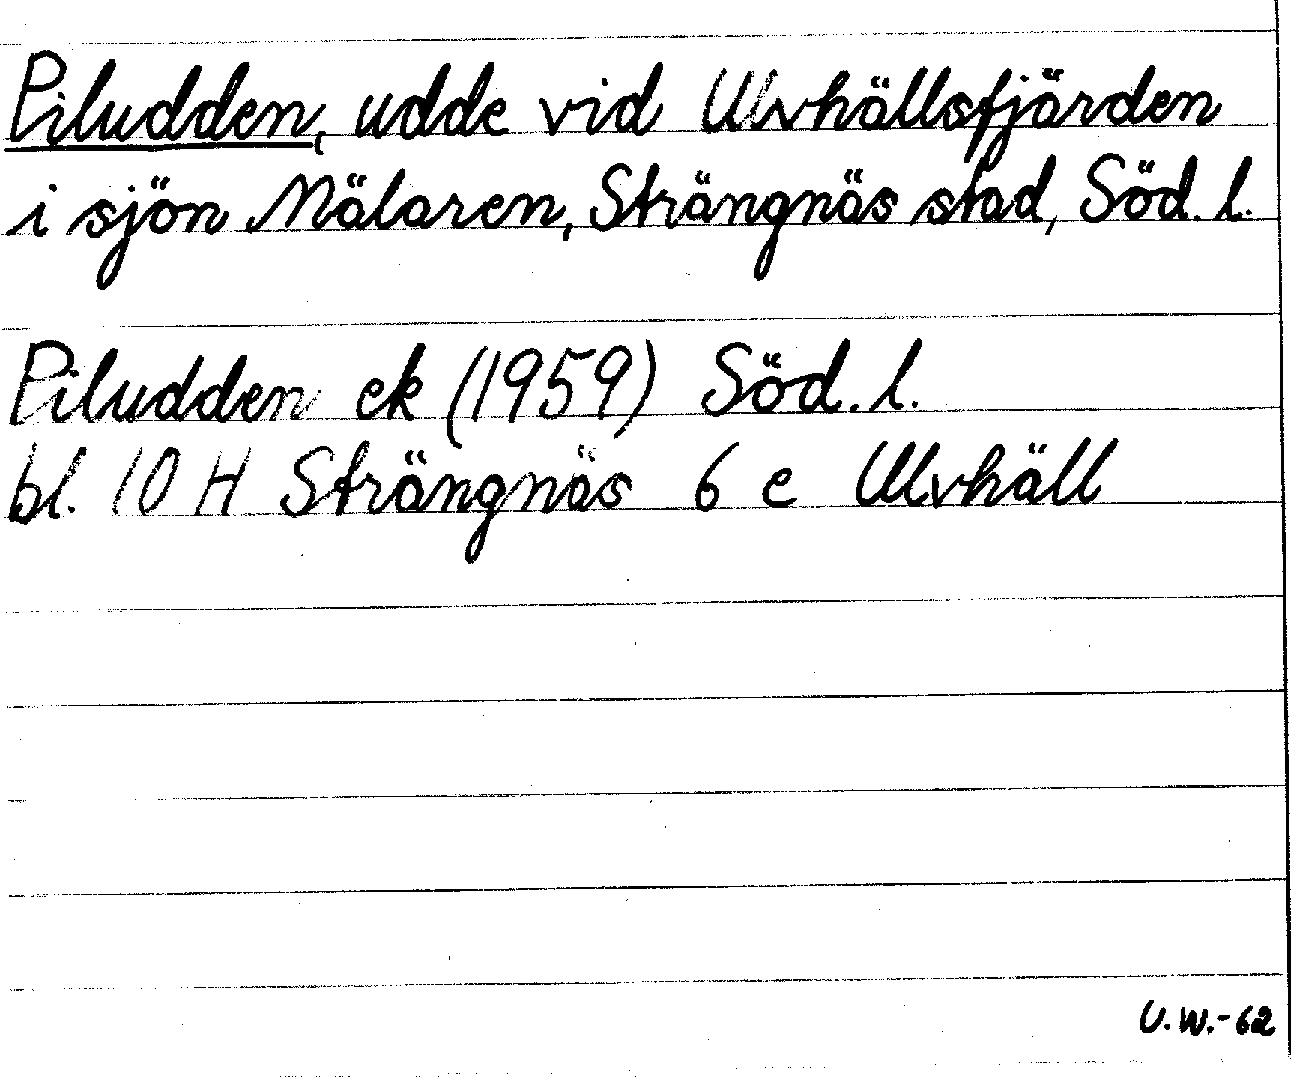 Piludden, udde vid Ulvhällsfjärden
i sjön Mälaren, Strängnäs stad, Söd. l.
Piludden ek (1959) Söd. l.
bl. 10 H Strängnäs 6 e Ulvhäll
U.W.-62